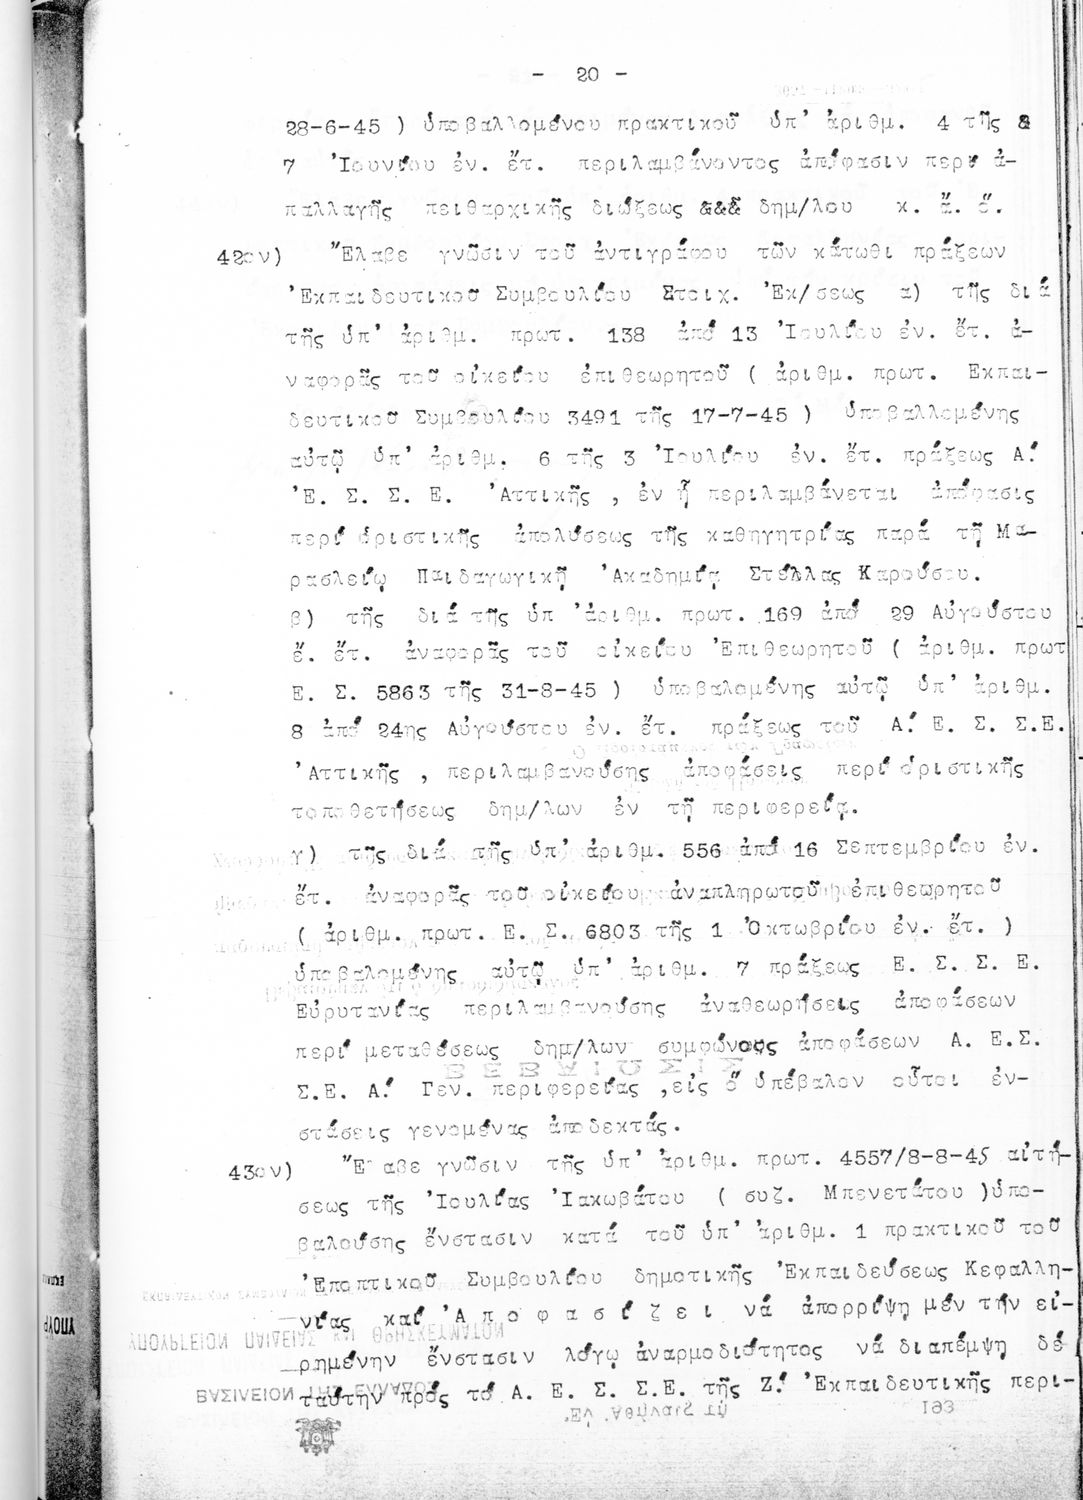 - 20 -
28-6-45 ) ὑποβαλλομένου πρακτικοῦ ὑπ' ἀριθμ. 4 τῆς &
7 Ἰουνίου ἐν. ἔτ. περιλαμβάνοντος ἀπόφασιν περί ἀ-
παλλαγῆς πειθαρχικῆς διώξεως &&& δημ/λου κ. ἄ. ὅ.
42ον) Ἔλαβε γνῶσιν τοῦ ἀντιγράφου τῶν κάτωθι πράξεων
Ἐκπαιδευτικοῦ Συμβουλίου Στοιχ. Ἐκ/σεως α) τῆς διά
τῆς ὑπ' ἀριθμ. πρωτ. 138 ἀπό 13 Ἰουλίου ἐν. ἔτ. ἀ-
ναφορᾶς τοῦ οἰκείου ἐπιθεωρητοῦ ( ἀριθμ. πρωτ. Εκπαι-
δευτικοῦ Συμβουλίου 3491 τῆς 17-7-45 ) ὑποβαλλομένης
αὐτῷ ὑπ' ἀριθμ. 6 τῆς 3 Ἰουλίου ἐν. ἔτ. πράξεως Α.'
Ἐ. Σ. Σ. Ε. Ἀττικῆς , ἐν ᾗ περιλαμβάνεται ἀπόφασις
περί ὁριστικῆς ἀπολύσεως τῆς καθηγητρίας παρά τῇ Μα-
ρασλείῳ Παιδαγωγικῇ Ἀκαδημίᾳ Στέλλας Καρούσου.
β) τῆς διά τῆς ὑπ 'ἀριθμ. πρωτ. 169 ἀπό 29 Αὐγούστου
ἔ. ἔτ. ἀναφορᾶς τοῦ οἰκείου Ἐπιθεωρητοῦ ( ἀριθμ. πρωτ
Ε. Σ. 5863 τῆς 31-8-45 ) ὑποβαλομένης αὐτῷ ὑπ' ἀριθμ.
8 ἀπό 24ης Αὐγούστου ἐν. ἔτ. πράξεως τοῦ Α.' Ε. Σ. Σ.Ε.
Ἀττικῆς , περιλαμβανούσης ἀποφάσεις περί ὁριστικῆς
τοποθετήσεως δημ/λων ἐν τῇ περιφερείᾳ.
γ) τῆς διά τῆς ὑπ' ἀριθμ. 556 ἀπό 16 Σεπτεμβρίου ἐν.
ἔτ. ἀναφορᾶς τοῦ οἰκείου ἀναπληρωτοῦ ἐπιθεωρητοῦ
( ἀριθμ. πρωτ. Ε. Σ. 6803 τῆς 1 Ὀκτωβρίου ἐν. ἔτ. )
ὑποβαλομένης αὐτῷ ὑπ' ἀριθμ. 7 πράξεως Ε. Σ. Σ. Ε.
Εὐρυτανίας περιλαμβανούσης ἀναθεωρήσεις ἀποφάσεων
περί μεταθέσεως δημ/λων συμφώνως ἀποφάσεων Α. Ε.Σ.
Σ.Ε. Α.' Γεν. περιφερείας ,εἰς ὅ ὑπέβαλον οὗτοι ἐν-
στάσεις γενομένας ἀποδεκτάς.
43ον) Ἔλαβε γνῶσιν τῆς ὑπ' ἀριθμ. πρωτ. 4557/8-8-45 αἰτή-
σεως τῆς Ἰουλίας Ἰακωβάτου ( συζ. Μπενετάτου )ὑπο-
βαλούσης ἔνστασιν κατά τοῦ ὑπ' ἀριθμ. 1 πρακτικοῦ τοῦ
Ἐποπτικοῦ Συμβουλίου δημοτικῆς Ἐκπαιδεύσεως Κεφαλλη-
νίας καί Ἀ π ο φ α σ ί ζ ε ι νά ἀπορρίψῃ μέν τήν εἰ-
ρημένην ἔνστασιν λόγῳ ἀναρμοδιότητος νά διαπέμψῃ δέ
ταύτην πρός τό Α. Ε. Σ. Σ.Ε. τῆς Ζ.' Ἐκπαιδευτικῆς περι-
ΥΠΟΥΡΓΕΙΟΝ ΠΑΙΔΕΙΑΣ ΚΑΙ ΘΡΗΣΚΕΥΜΑΤΩΝ
ΒΑΣΙΛΕΙΟΝ ΤΗΣ ΕΛΛΑΔΟΣ
ΒΕΒΑΙΩΣΙΣ